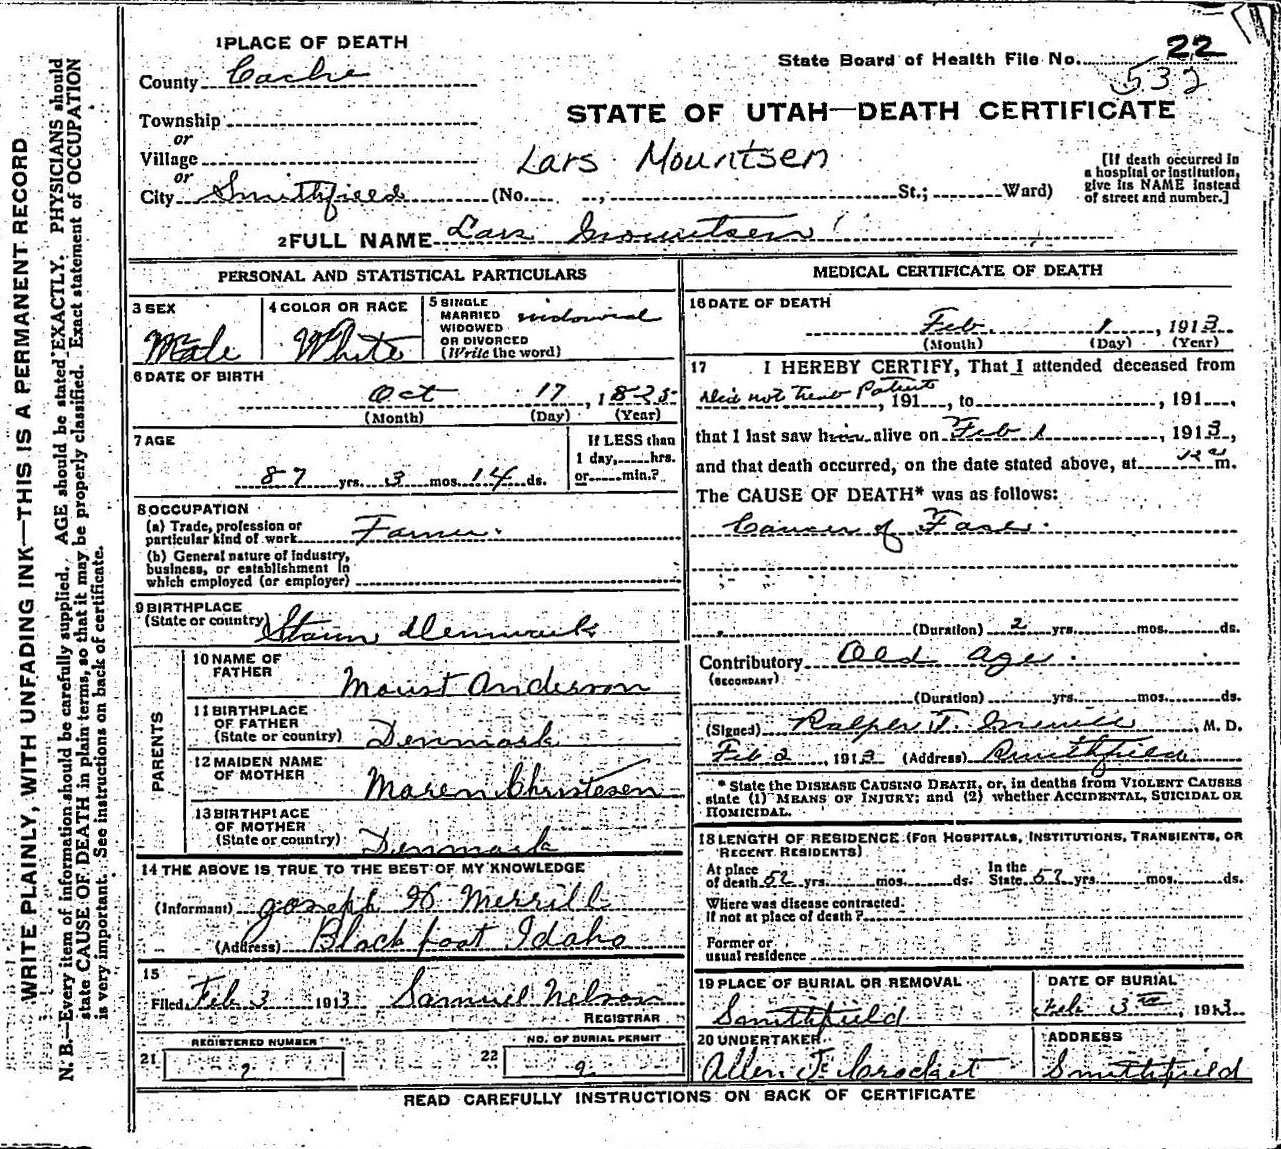 WRITE PLAINLY, WITH UNFADING INK—THIS IS A PERMANENT RECORD
N. B.—Every item of information should be carefully supplied. AGE should be stated EXACTLY. PHYSICIANS should
state CAUSE OF DEATH in plain terms, so that it may be properly classified. Exact statement of OCCUPATION
is very important. See instructions on back of certificate.
1 PLACE OF DEATH
County Cache
Township
or
Village
or
City Smithfield (No. , St.; Ward)
State Board of Health File No. 22
532
STATE OF UTAH—DEATH CERTIFICATE
Lars Mountsen
[If death occurred in
a hospital or institution,
give its NAME instead
of street and number.]
2 FULL NAME Lars Mountsen
PERSONAL AND STATISTICAL PARTICULARS
3 SEX
Male
4 COLOR OR RACE
White
5 SINGLE
MARRIED
WIDOWED
OR DIVORCED
(Write the word)
widowed
6 DATE OF BIRTH
Oct 17, 1825
(Month) (Day) (Year)
7 AGE
87 yrs. 3 mos. 14 ds.
If LESS than
1 day, hrs.
or min.?
8 OCCUPATION
(a) Trade, profession or
particular kind of work Farmer.
(b) General nature of industry,
business, or establishment in
which employed (or employer)
9 BIRTHPLACE
(State or country) Denmark
PARENTS
10 NAME OF
FATHER
Moust Anderson
11 BIRTHPLACE
OF FATHER
(State or country) Denmark
12 MAIDEN NAME
OF MOTHER
Maren Christesen
13 BIRTHPLACE
OF MOTHER
(State or country) Denmark
14 THE ABOVE IS TRUE TO THE BEST OF MY KNOWLEDGE
(Informant) Joseph H Merrill
(Address) Blackfoot Idaho
15
Filed Feb 3 1913 Samuel Nelson
REGISTRAR
21 REGISTERED NUMBER
22 NO. OF BURIAL PERMIT
MEDICAL CERTIFICATE OF DEATH
16 DATE OF DEATH
Feb. 1, 1913
(Month) (Day) (Year)
17 I HEREBY CERTIFY, That I attended deceased from
Did not Treat Patient, 191 , to , 191 ,
that I last saw him alive on Feb 1, 1913,
and that death occurred, on the date stated above, at m.
The CAUSE OF DEATH* was as follows:
Cancer of Face.
(Duration) 2 yrs. mos. ds.
Contributory Old age.
(SECONDARY)
(Duration) yrs. mos. ds.
(Signed) T. Merrill M. D.
Feb 2, 1913 (Address) Smithfield
* State the DISEASE CAUSING DEATH, or, in deaths from VIOLENT CAUSES
state (1) MEANS OF INJURY; and (2) whether ACCIDENTAL, SUICIDAL OR
HOMICIDAL.
18 LENGTH OF RESIDENCE (FOR HOSPITALS, INSTITUTIONS, TRANSIENTS, OR
RECENT RESIDENTS)
At place
of death 52 yrs. mos. ds.
In the
State yrs. mos. ds.
Where was disease contracted
if not at place of death?
Former or
usual residence
19 PLACE OF BURIAL OR REMOVAL
Smithfield
DATE OF BURIAL
Feb 3rd, 1913
20 UNDERTAKER
Allen F. Crocket
ADDRESS
Smithfield
READ CAREFULLY INSTRUCTIONS ON BACK OF CERTIFICATE